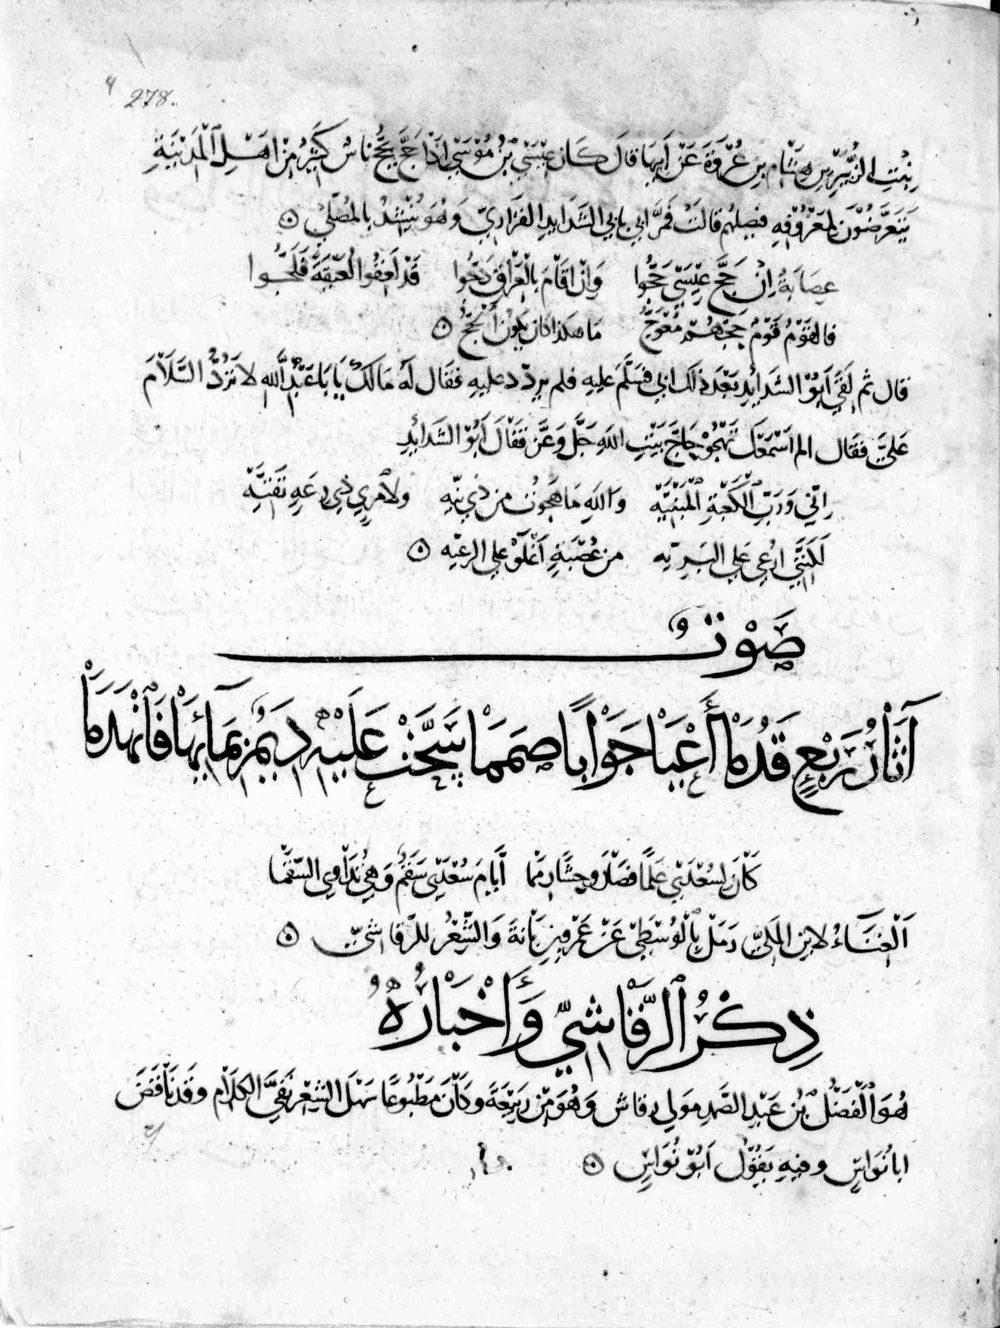 278.
بنت الزبير بن هشام بن عروة عن أبيها قال كان عيسى بن موسى إذا حج يحج ناس كثير من أهل المدينة
يتعرضون لمعروفه فيصلهم قالت فمر أبي بأبي الشدايد الفزاري وهو ينشد بالمصلى ه
عصابة إن حج عيسى حجوا وإن أقام بالعراق دجوا قد لعقوا لعيقة فلجوا
فالقوم قوم حجهم معوج ما هكذا كان يكون الحج ه
قال ثم لقي أبو الشدائد بعد ذلك أبي فسلم عليه فلم يردد عليه فقال له مالك يا با عبد الله لا ترد السلام
علي فقال الم اسمعك تهجو حاج بيت الله جل وعز فقال أبو الشدائد
إني ورب الكعبة المبنيه والله ما هجوت من ذي نيه ولا امرئ ذي رعة نقيه
لكنني ارعى على البريه من عصبة أغلوا على الرعيه ه
صوت
آثار ربع قدما أعيا جوابا صمما سحت عليه ديم بمائها فانهدما
كان لسعدى علما فصار وحشا رمما أيام سعدى سقم وهي تداوي السقما
الغناء لابن المكي رمل بالوسطى عن عمرو بن بانة والشعر للرقاشي ه
ذكر الرقاشي وأخباره
هو الفضل بن عبد الصمد مولى رقاش وهو من ربيعة وكان مطبوعا سهل الشعر نقي الكلام وقد ناقض
ابا نواس وفيه يقول أبو نواس ه